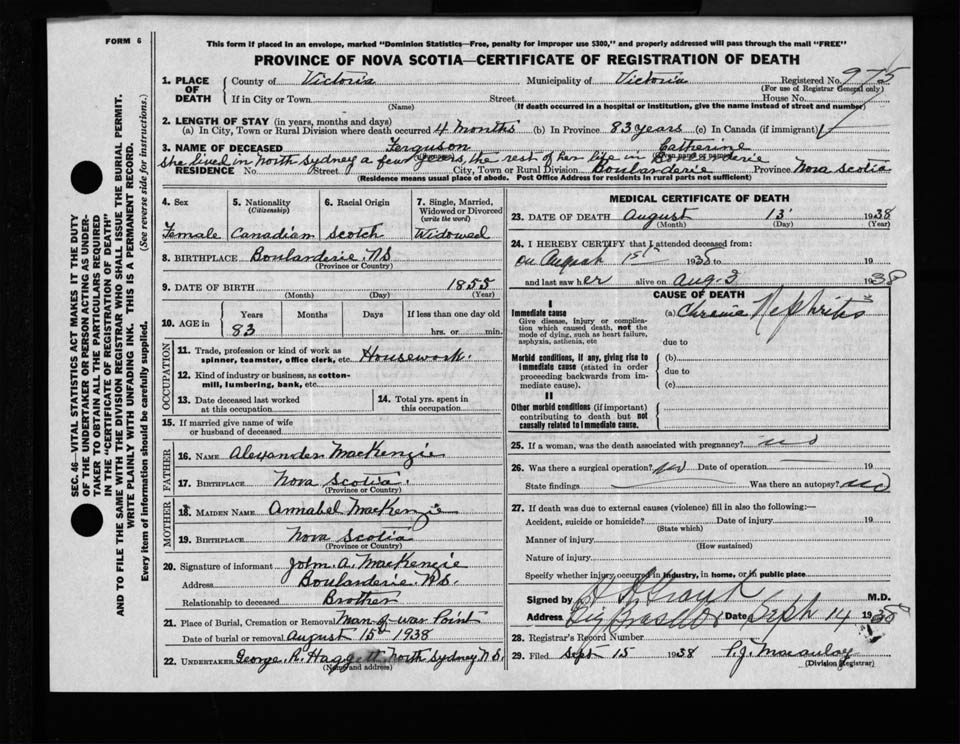 FORM 6
This form if placed in an envelope, marked "Dominion Statistics—Free, penalty for improper use $300," and properly addressed will pass through the mail "FREE"
PROVINCE OF NOVA SCOTIA—CERTIFICATE OF REGISTRATION OF DEATH
1. PLACE OF DEATH County of Victoria Municipality of Victoria Registered No. 975
(For use of Registrar General only)
If in City or Town Street House No.
(Name) (If death occurred in a hospital or institution, give the name instead of street and number)
2. LENGTH OF STAY (in years, months and days)
(a) In City, Town or Rural Division where death occurred 4 months (b) In Province 83 years (c) In Canada (if immigrant)
3. NAME OF DECEASED Ferguson Catherine
She lived in North Sydney a few years, the rest of her life in Boularderie
RESIDENCE No. Street City, Town or Rural Division Boularderie Province Nova Scotia
(Residence means usual place of abode. Post Office Address for residents in rural parts not sufficient)
4. Sex 5. Nationality (Citizenship) 6. Racial Origin 7. Single, Married, Widowed or Divorced (write the word)
Female Canadian Scotch Widowed
8. BIRTHPLACE Boularderie. N.S.
(Province or Country)
9. DATE OF BIRTH 1855
(Month) (Day) (Year)
10. AGE in Years Months Days If less than one day old
83 hrs. or min.
OCCUPATION
11. Trade, profession or kind of work as spinner, teamster, office clerk, etc. Housework.
12. Kind of industry or business, as cotton-mill, lumbering, bank, etc.
13. Date deceased last worked at this occupation 14. Total yrs. spent in this occupation
15. If married give name of wife or husband of deceased
FATHER
16. NAME Alexander MacKenzie
17. BIRTHPLACE Nova Scotia.
(Province or Country)
MOTHER
18. MAIDEN NAME Annabel MacKenzie
19. BIRTHPLACE Nova Scotia
(Province or Country)
20. Signature of informant John. A. MacKenzie
Address Boularderie. N.S.
Relationship to deceased Brother
21. Place of Burial, Cremation or Removal Man-of-war Point
Date of burial or removal August 15th 1938
22. UNDERTAKER George. R. Haggett. North Sydney N.S.
(Name and address)
MEDICAL CERTIFICATE OF DEATH
23. DATE OF DEATH August 13 1938
(Month) (Day) (Year)
24. I HEREBY CERTIFY that I attended deceased from:
on August 1st 1938 to 19
and last saw her alive on Aug. 3 1938
CAUSE OF DEATH
I
Immediate cause (a) Chronic Nephritis
Give disease, injury or complication which caused death, not the mode of dying, such as heart failure, asphyxia, asthenia, etc
due to
Morbid conditions, if any, giving rise to immediate cause (stated in order proceeding backwards from immediate cause).
(b)
due to
(c)
II
Other morbid conditions (if important) contributing to death but not causally related to immediate cause.
25. If a woman, was the death associated with pregnancy? no
26. Was there a surgical operation? no Date of operation 19
State findings Was there an autopsy? no
27. If death was due to external causes (violence) fill in also the following:—
Accident, suicide or homicide? Date of injury 19
(State which)
Manner of injury
(How sustained)
Nature of injury
Specify whether injury occurred in industry, in home, or in public place
Signed by M.D.
Address Date Sept 14 1938
28. Registrar's Record Number 1
29. Filed Sept 15 1938 P.J. Macaulay
(Division Registrar)
SEC. 46—VITAL STATISTICS ACT MAKES IT THE DUTY
OF THE UNDERTAKER OR PERSON ACTING AS UNDER-
TAKER TO OBTAIN ALL THE PARTICULARS REQUIRED
IN THE "CERTIFICATE OF REGISTRATION OF DEATH"
AND TO FILE THE SAME WITH THE DIVISION REGISTRAR WHO SHALL ISSUE THE BURIAL PERMIT.
WRITE PLAINLY WITH UNFADING INK. THIS IS A PERMANENT RECORD.
Every item of information should be carefully supplied. (See reverse side for instructions.)